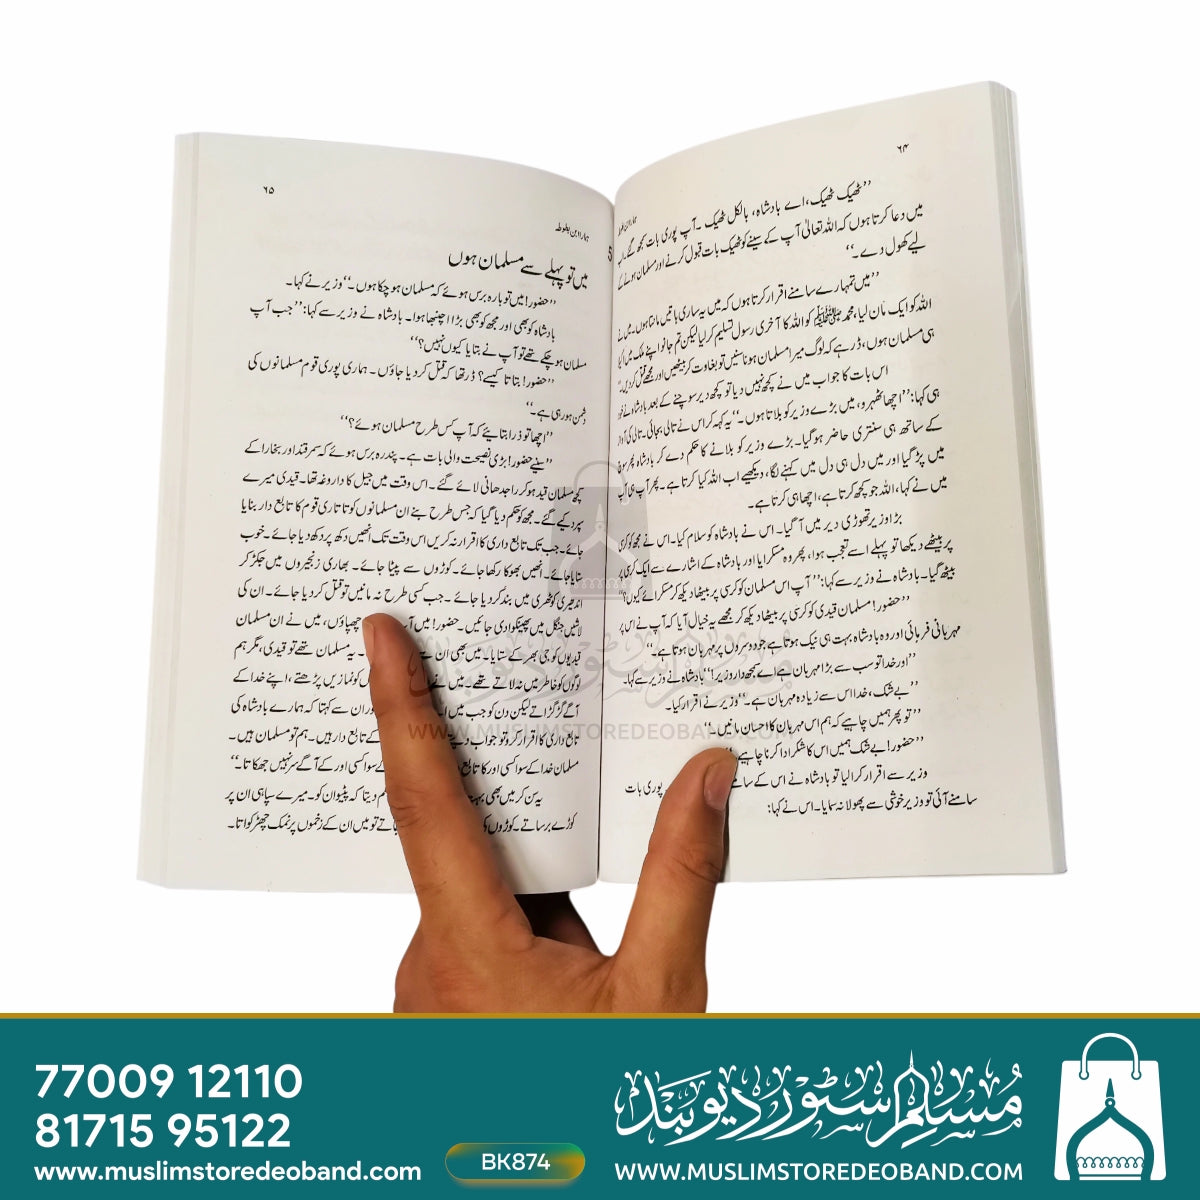 ۶۴
ہمارا ابن بطوطہ
’’ٹھیک ٹھیک، اے بادشاہ، بالکل ٹھیک۔ آپ پوری بات سمجھ گئے۔ اب
میں دعا کرتا ہوں کہ اللہ تعالیٰ آپ کے سینے کو ٹھیک بات قبول کرنے اور مسلمان ہونے کے
لیے کھول دے۔‘‘
’’میں تمہارے سامنے اقرار کرتا ہوں کہ میں یہ ساری باتیں مانتا ہوں۔ میں نے
اللہ کو ایک مان لیا، محمد ﷺ کو اللہ کا آخری رسول تسلیم کر لیا لیکن تم جانو اپنے ملک میں اکیلا
ہی مسلمان ہوں، ڈر ہے کہ لوگ میرا مسلمان ہونا سنیں تو بغاوت کر بیٹھیں اور مجھے قتل کر دیں۔‘‘
اس بات کا جواب میں نے کچھ نہیں دیا تو کچھ دیر سوچنے کے بعد بادشاہ نے خود
ہی کہا: ’’اچھا ٹھہرو، میں بڑے وزیر کو بلاتا ہوں۔‘‘ یہ کہہ کر اس نے تالی بجائی۔ تالی کی آواز
کے ساتھ ہی سنتری حاضر ہو گیا۔ بڑے وزیر کو بلانے کا حکم دے کر بادشاہ پھر سوچ
میں پڑ گیا اور میں دل ہی دل میں کہنے لگا، دیکھیے اب اللہ کیا کرتا ہے۔ پھر آپ ہی آپ
میں نے کہا، اللہ جو کچھ کرتا ہے، اچھا ہی کرتا ہے۔
بڑا وزیر تھوڑی دیر میں آ گیا۔ اس نے بادشاہ کو سلام کیا۔ اس نے مجھ کو کرسی
پر بیٹھے دیکھا تو پہلے اسے تعجب ہوا، پھر وہ مسکرایا اور بادشاہ کے اشارے سے ایک کرسی پر
بیٹھ گیا۔ بادشاہ نے وزیر سے کہا: ’’آپ اس مسلمان کو کرسی پر بیٹھا دیکھ کر مسکرائے کیوں؟‘‘
’’حضور! مسلمان قیدی کو کرسی پر بیٹھا دیکھ کر مجھے یہ خیال آیا کہ آپ نے اس پر
مہربانی فرمائی اور وہ بادشاہ بہت ہی نیک ہوتا ہے جو دوسروں پر مہربان ہوتا ہے۔‘‘
’’اور خدا تو سب سے بڑا مہربان ہے اے سمجھدار وزیر!‘‘ بادشاہ نے وزیر سے کہا۔
’’بے شک، خدا اس سے زیادہ مہربان ہے۔‘‘ وزیر نے اقرار کیا۔
’’تو پھر ہمیں چاہیے کہ ہم اس مہربان کا احسان مانیں۔‘‘
’’حضور! بے شک ہمیں اس کا شکر ادا کرنا چاہیے۔‘‘
وزیر سے اقرار کرا لیا تو بادشاہ نے اس کے سامنے پوری بات
سامنے آئی تو وزیر خوشی سے پھولا نہ سمایا۔ اس نے کہا:
۶۵
ہمارا ابن بطوطہ
میں تو پہلے سے مسلمان ہوں
’’حضور! میں تو بارہ برس ہوئے کہ مسلمان ہو چکا ہوں۔‘‘ وزیر نے کہا۔
بادشاہ کو بھی اور مجھ کو بھی بڑا اچنبھا ہوا۔ بادشاہ نے وزیر سے کہا: ’’جب آپ
مسلمان ہو چکے تھے تو آپ نے بتایا کیوں نہیں؟‘‘
’’حضور! بتاتا کیسے؟ ڈر تھا کہ قتل کر دیا جاؤں۔ ہماری پوری قوم مسلمانوں کی
دشمن ہو رہی ہے۔‘‘
’’اچھا تو ذرا بتایئے کہ آپ کس طرح مسلمان ہوئے؟‘‘
’’سنیے حضور! بڑی نصیحت والی بات ہے۔ پندرہ برس ہوئے کہ سمرقند اور بخارا کے
کچھ مسلمان قید ہو کر راجدھانی لائے گئے۔ اس وقت میں جیل کا داروغہ تھا۔ قیدی میرے
سپرد کیے گئے۔ مجھ کو حکم دیا گیا کہ جس طرح بنے ان مسلمانوں کو تاتاری قوم کا تابع دار بنایا
جائے۔ جب تک تابع داری کا اقرار نہ کریں اس وقت تک انھیں دکھ پر دکھ دیا جائے۔ خوب
ستایا جائے۔ انھیں بھوکا رکھا جائے۔ کوڑوں سے پیٹا جائے۔ بھاری زنجیروں میں جکڑ کر
اندھیری کوٹھری میں بند کر دیا جائے۔ جب کسی طرح نہ مانیں تو قتل کر دیا جائے۔ ان کی
لاشیں جنگل میں پھینکوا دی جائیں۔ حضور! میں چھپاؤں، میں نے ان مسلمان
قیدیوں کو جی بھر کے ستایا۔ میں بھی ان یہ مسلمان تھے تو قیدی، مگر ہم
لوگوں کو خاطر میں نہ لاتے تھے۔ میں نے کو نمازیں پڑھتے، اپنے خدا کے
آگے گڑگڑاتے لیکن دن کو جب میں اور ان سے کہتا کہ ہمارے بادشاہ کی
تابع داری کا اقرار کرو تو جواب دیتے کے تابع دار ہیں۔ ہم تو مسلمان ہیں۔
مسلمان خدا کے سوا کسی اور کا تابع کے سوا کسی اور کے آگے سر نہیں جھکاتا۔‘‘
یہ سن کر میں بھی بہت حکم دیتا کہ پٹیوان کو۔ میرے سپاہی ان پر
کوڑے برساتے۔ کوڑوں کی جاتے تو میں ان کے زخموں پر نمک چھڑکواتا۔
WWW.MUSLIMSTOREDEOBAND.COM
77009 12110
81715 95122
www.muslimstoredeoband.com
BK874
مسلم سٹور دیوبند
WWW.MUSLIMSTOREDEOBAND.COM